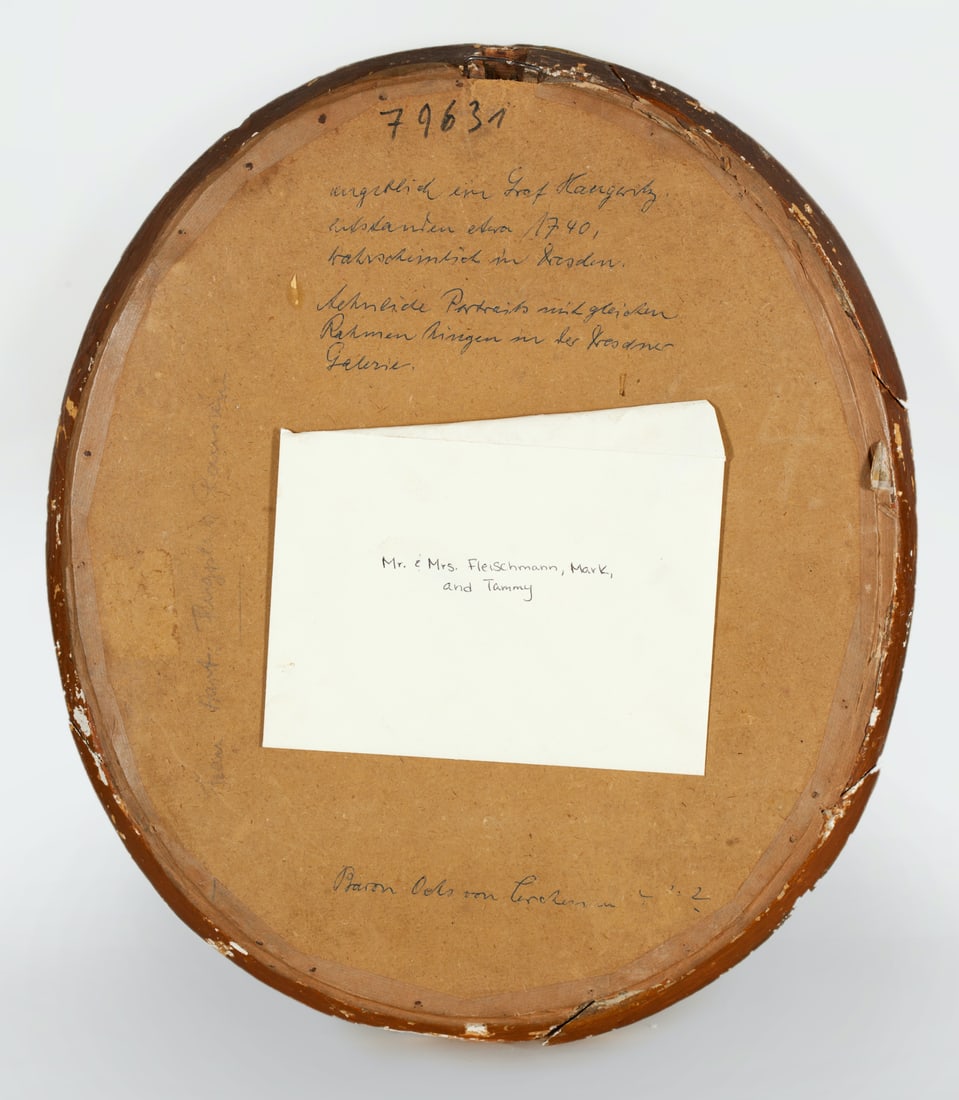 79631
angeblich ein Graf Haugwitz.
entstanden etwa 1740,
wahrscheinlich in Dresden.
Aehnliche Portraits mit gleichen
Rahmen hingen in der Dresdner
Galerie.
Mr. & Mrs. Fleischmann, Mark,
and Tammy
Baron Ochs von Lerchenau